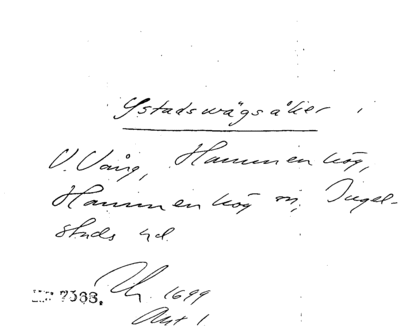 Ystadswägsåker
V. Vång, Hammenhög,
Hammenhög sn, Ingel-
stads hd.
1699
Akt 1
7388.